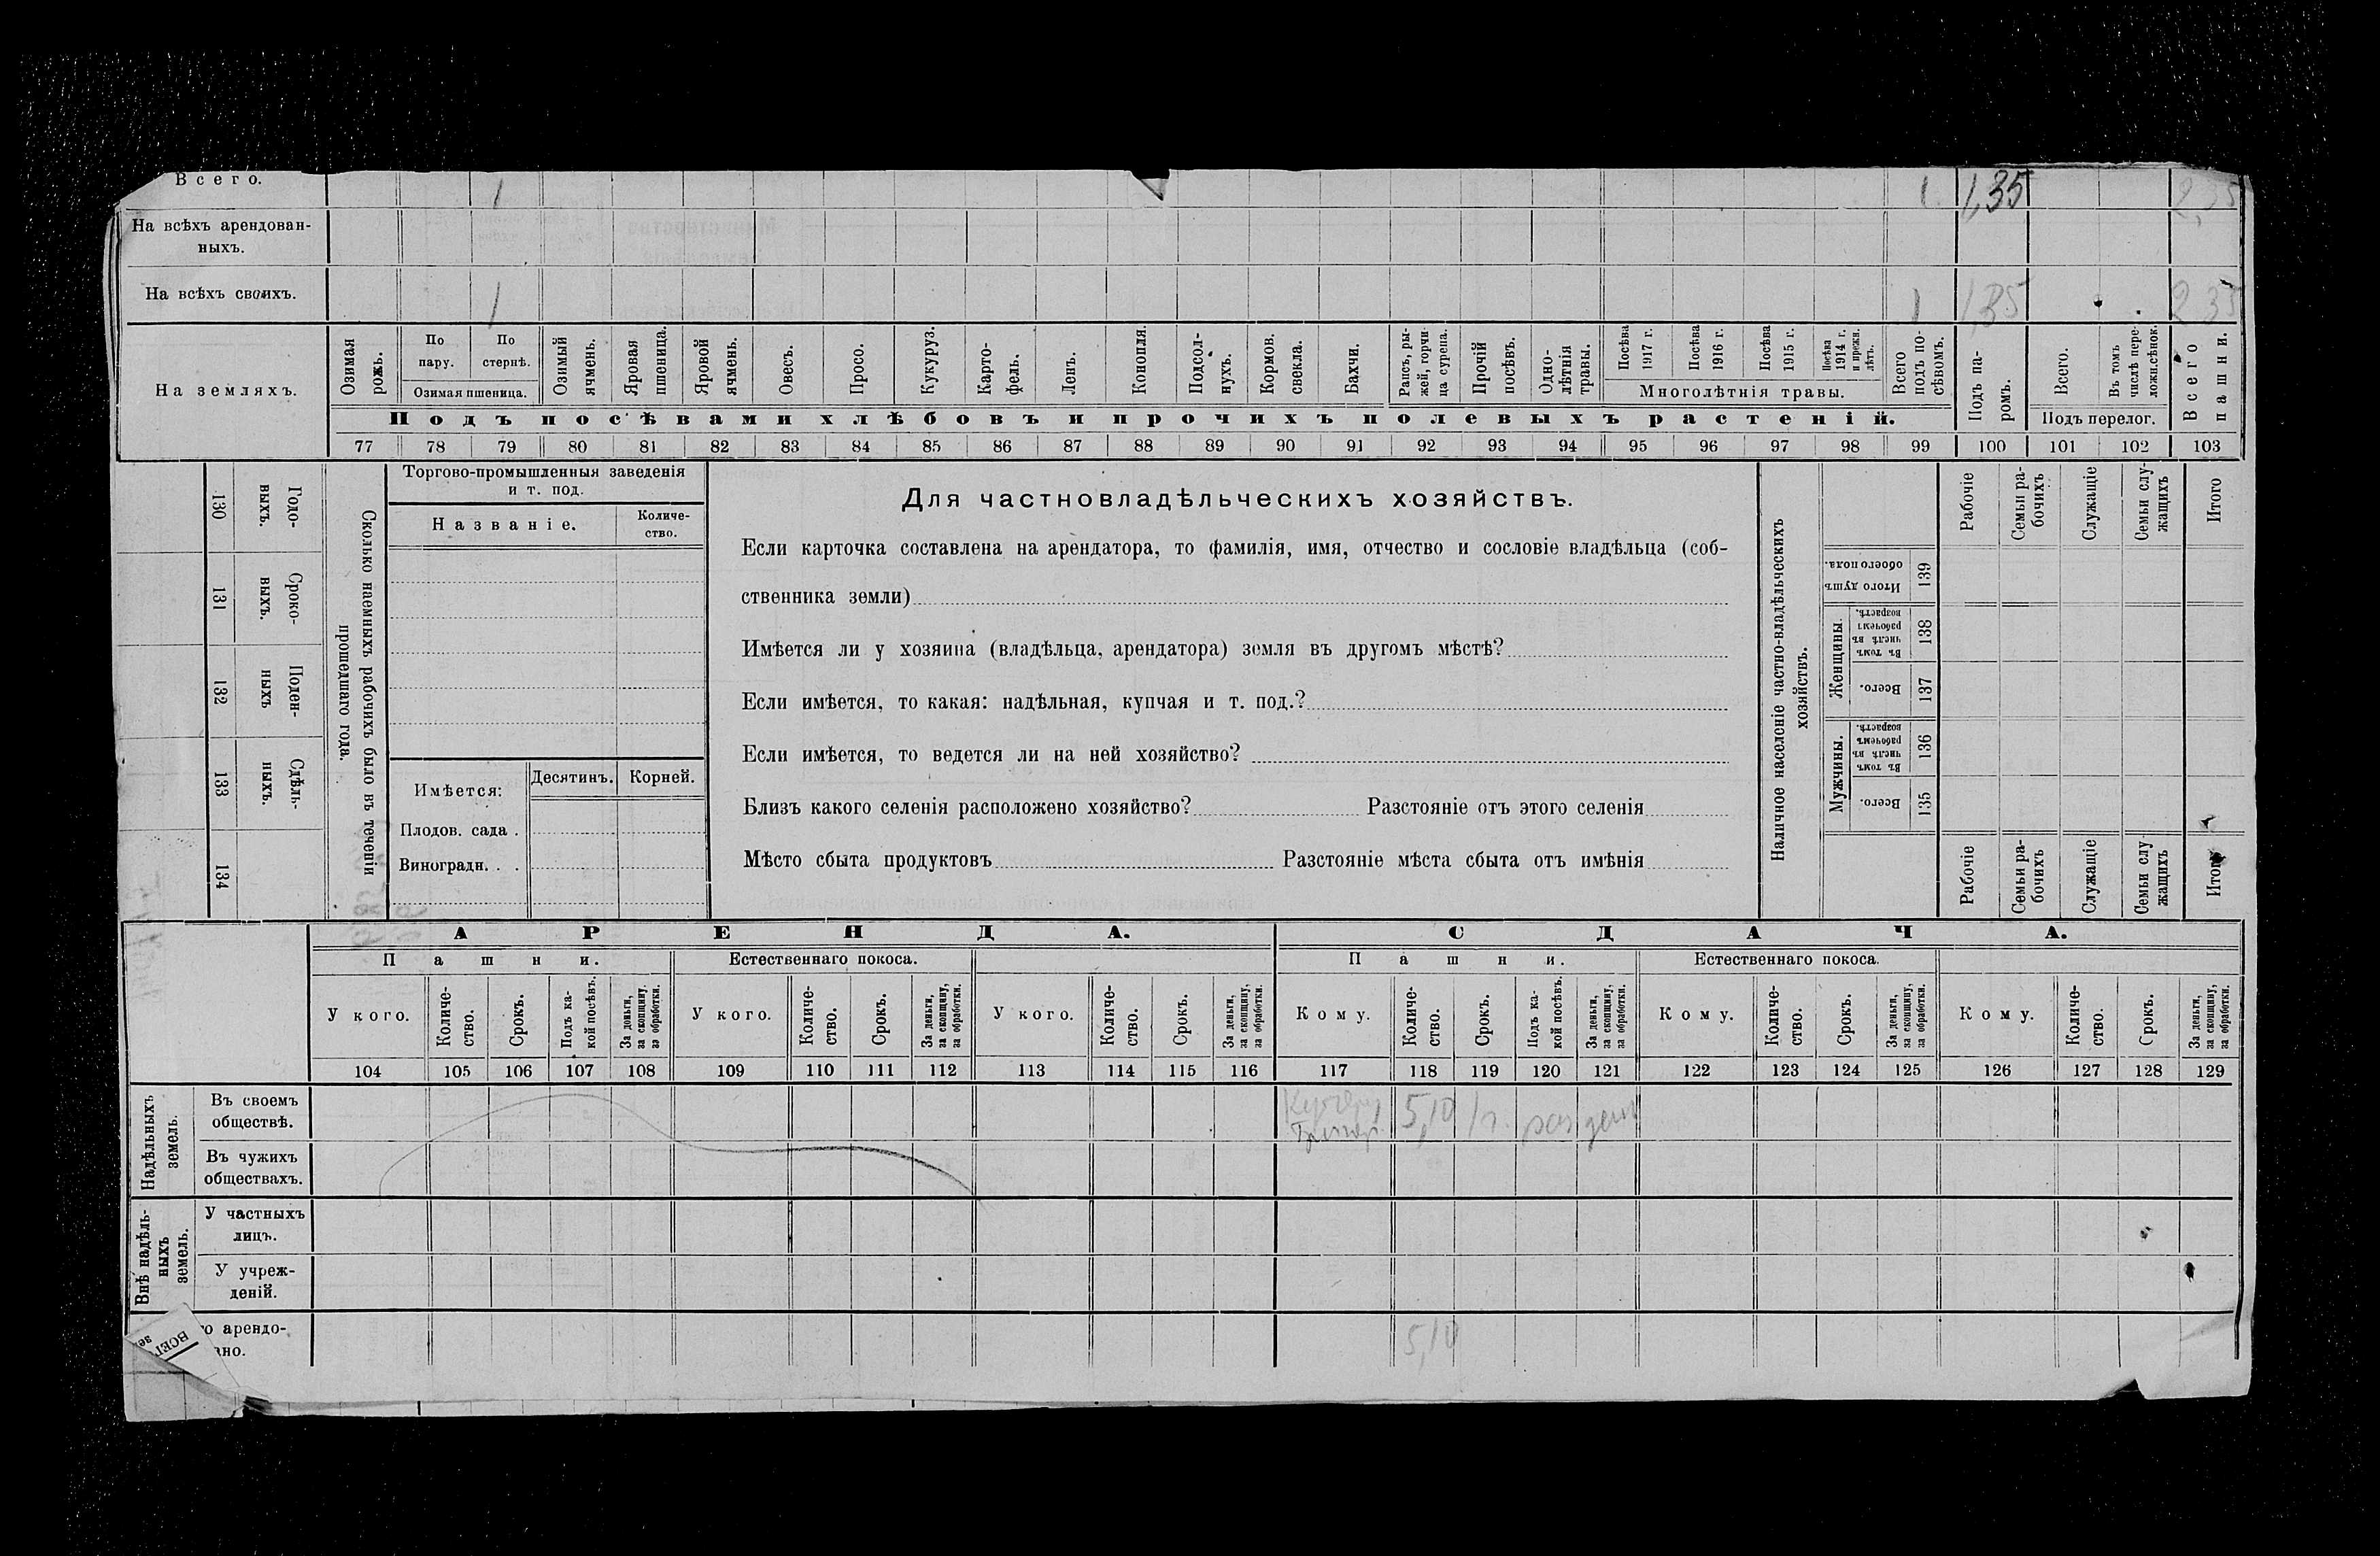 Всего. 1 1 1,35 2,35
На всѣхъ арендован-
ныхъ.
На всѣхъ своихъ. 1 1 1,35 2,35
На земляхъ.
Озимая рожь.
По пару.
По стернѣ.
Озимая пшеница.
Озимый ячмень.
Яровая пшеница.
Яровой ячмень.
Овесъ.
Просо.
Кукуруз.
Карто-
фель.
Ленъ.
Конопля.
Подсол-
нухъ.
Кормов.
свекла.
Бахчи.
Рапсъ, ры-
жей, горчи
ца сурепа.
Прочій
посѣвъ.
Одно-
лѣтнія
травы.
Посѣва
1917 г.
Посѣва
1916 г.
Посѣва
1915 г.
Посѣва
1914 г.
и прежн.
лѣтъ.
Многолѣтнія травы.
Всего
подъ по-
сѣвомъ.
Подъ па-
ромъ.
Всего.
Въ томъ
числѣ пере-
ложн.сѣнок.
Подъ перелог.
Всего
пашни.
Подъ посѣвами хлѣбовъ и прочихъ полевыхъ растеній.
77 78 79 80 81 82 83 84 85 86 87 88 89 90 91 92 93 94 95 96 97 98 99 100 101 102 103
130 Годо-
выхъ.
131 Сроко-
выхъ.
132 Поден-
ныхъ
133 Сдѣль-
ныхъ.
134
Сколько наемныхъ рабочихъ было въ теченіи
прошедшаго года.
Торгово-промышленныя заведенія
и т. под.
Названіе.
Количе-
ство.
Имѣется:
Десятинъ.
Корней.
Плодов. сада .
Виноградн. . .
Для частновладѣльческихъ хозяйствъ.
Если карточка составлена на арендатора, то фамилія, имя, отчество и сословіе владѣльца (соб-
ственника земли)
Имѣется ли у хозяина (владѣльца, арендатора) земля въ другомъ мѣстѣ?
Если имѣется, то какая: надѣльная, купчая и т. под.?
Если имѣется, то ведется ли на ней хозяйство?
Близъ какого селенія расположено хозяйство? Разстояніе отъ этого селенія
Мѣсто сбыта продуктовъ Разстояніе мѣста сбыта отъ имѣнія
Наличное населеніе частно-владѣльческихъ
хозяйствъ.
Рабочіе
Семьи ра-
бочихъ
Служащіе
Семьи слу-
жащихъ
Итого
Итого душъ
обоего пола.
139
Женщины.
Въ томъ
числѣ въ
рабочемъ
возрастѣ.
138
Всего.
137
Мужчины.
Въ томъ
числѣ въ
рабочемъ
возрастѣ.
136
Всего.
135
Рабочіе
Семьи ра-
бочихъ
Служащіе
Семьи слу-
жащихъ
Итого
АРЕНДА.
СДАЧА.
Пашни.
Естественнаго покоса.
Пашни.
Естественнаго покоса.
У кого.
Количе-
ство.
Срокъ.
Подъ ка-
кой посѣвъ.
За деньги,
за скопщину,
за обработки.
У кого.
Количе-
ство.
Срокъ.
За деньги,
за скопщину,
за обработки.
У кого.
Количе-
ство.
Срокъ.
За деньги,
за скопщину,
за обработки.
Кому.
Количе-
ство.
Срокъ.
Подъ ка-
кой посѣвъ.
За деньги,
за скопщину,
за обработки.
Кому.
Количе-
ство.
Срокъ.
За деньги,
за скопщину,
за обработки.
Кому.
Количе-
ство.
Срокъ.
За деньги,
за скопщину,
за обработки.
104 105 106 107 108 109 110 111 112 113 114 115 116 117 118 119 120 121 122 123 124 125 126 127 128 129
Надѣльныхъ
земель.
Въ своемъ
обществѣ.
5,10 1 г.
Въ чужихъ
обществахъ.
Внѣ надѣль-
ныхъ
земель.
У частныхъ
лицъ.
У учреж-
деній.
о арендо-
ано.
5,10
ВСЕГ